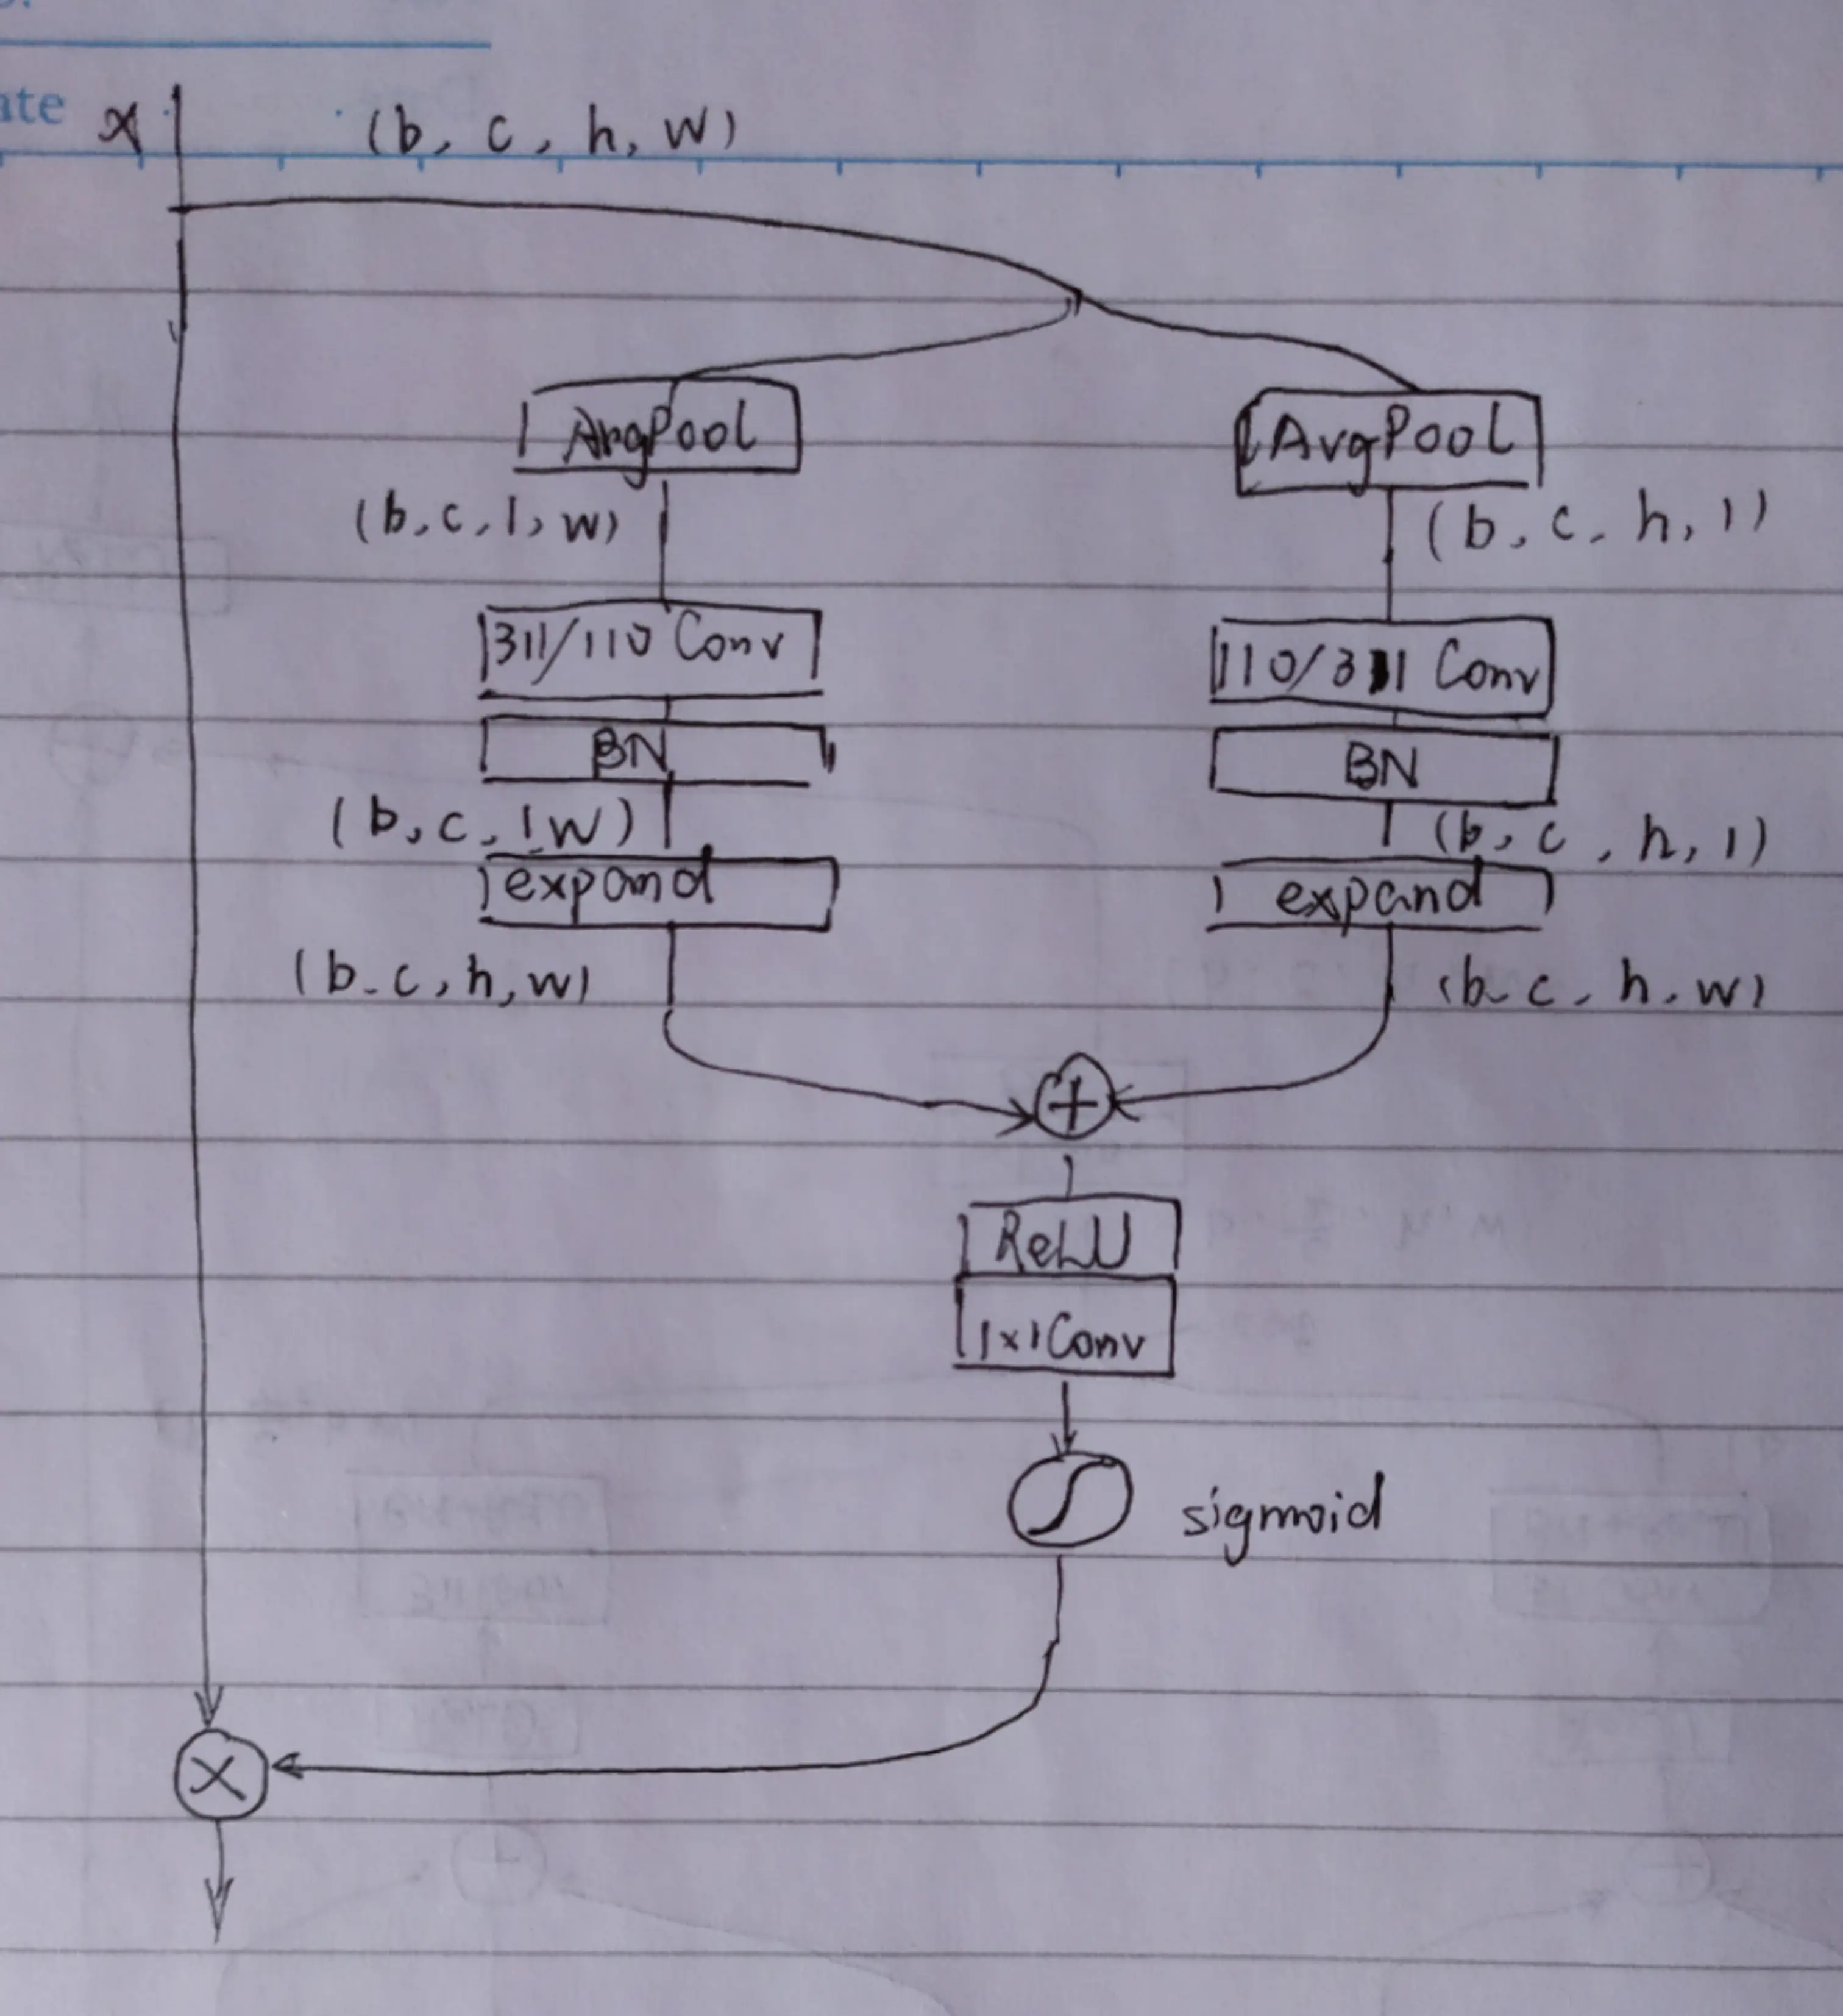 ate
x (b, c, h, w)
AvgPool AvgPool
(b, c, 1, w) (b, c, h, 1)
311/110 Conv 110/311 Conv
BN BN
(b, c, 1, w) (b, c, h, 1)
expand expand
(b, c, h, w) (b, c, h, w)
+
ReLU
1x1Conv
sigmoid
X